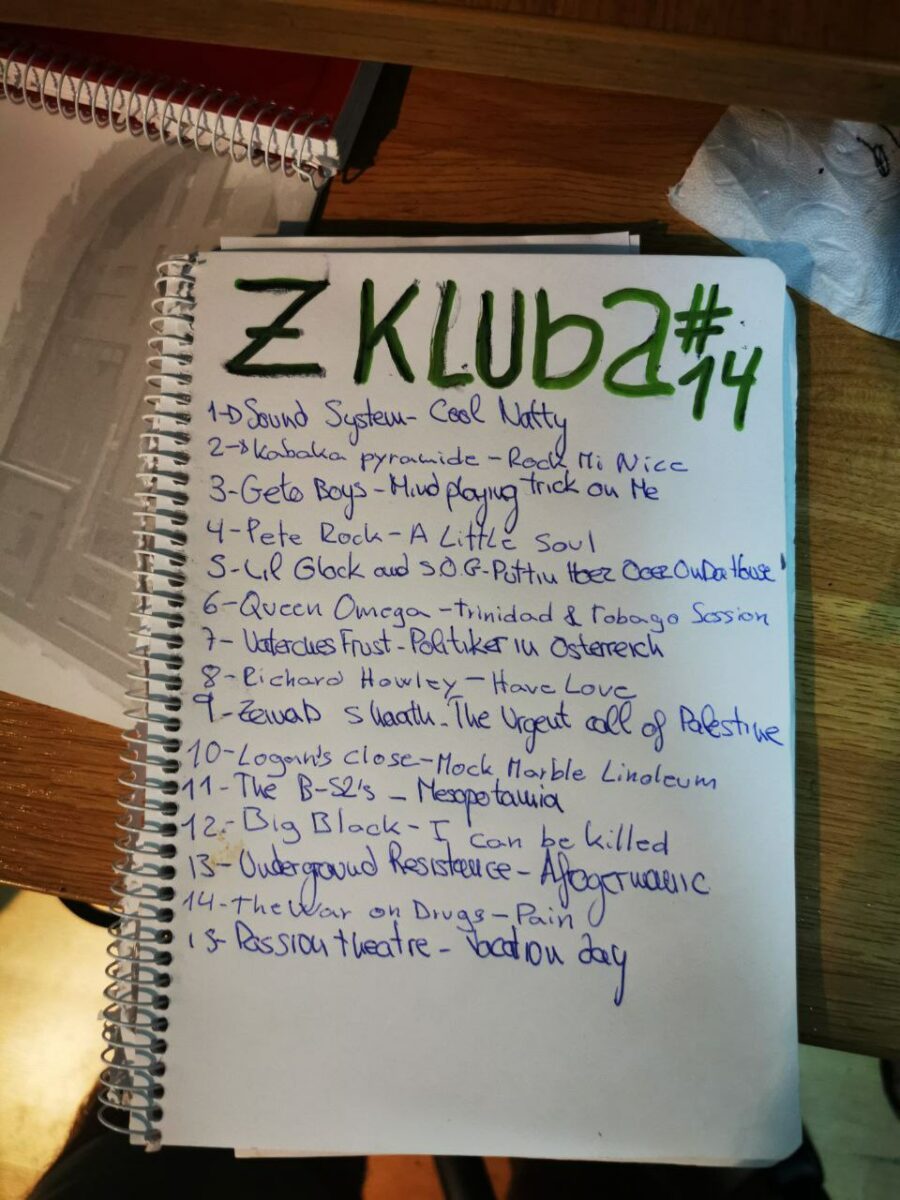 Z KLUBA #14
1-D Sound System- Cool Natty
2-> Kabaka pyramide - Rock Mi Nice
3-Geto Boys - Mind playing trick on Me
4-Pete Rock - A Little Soul
5-Lil Glock and S.O.G-Puttin Hoez Ooez On Da House
6-Queen Omega - Trinidad & Tobago Session
7- Vaterdues Frust - Politiker in Österreich
8-Richard Howley - Have Love
9-Zeinab Shaath - The Urgent call of Palestine
10-Logan's close-Mock Marble Linoleum
11-The B-52's - Mesopotamia
12-Big Black - I can be killed
13- Underground Resistence - Afogermanic
14-The War on Drugs - Pain
15- Passion theatre - Vacation day